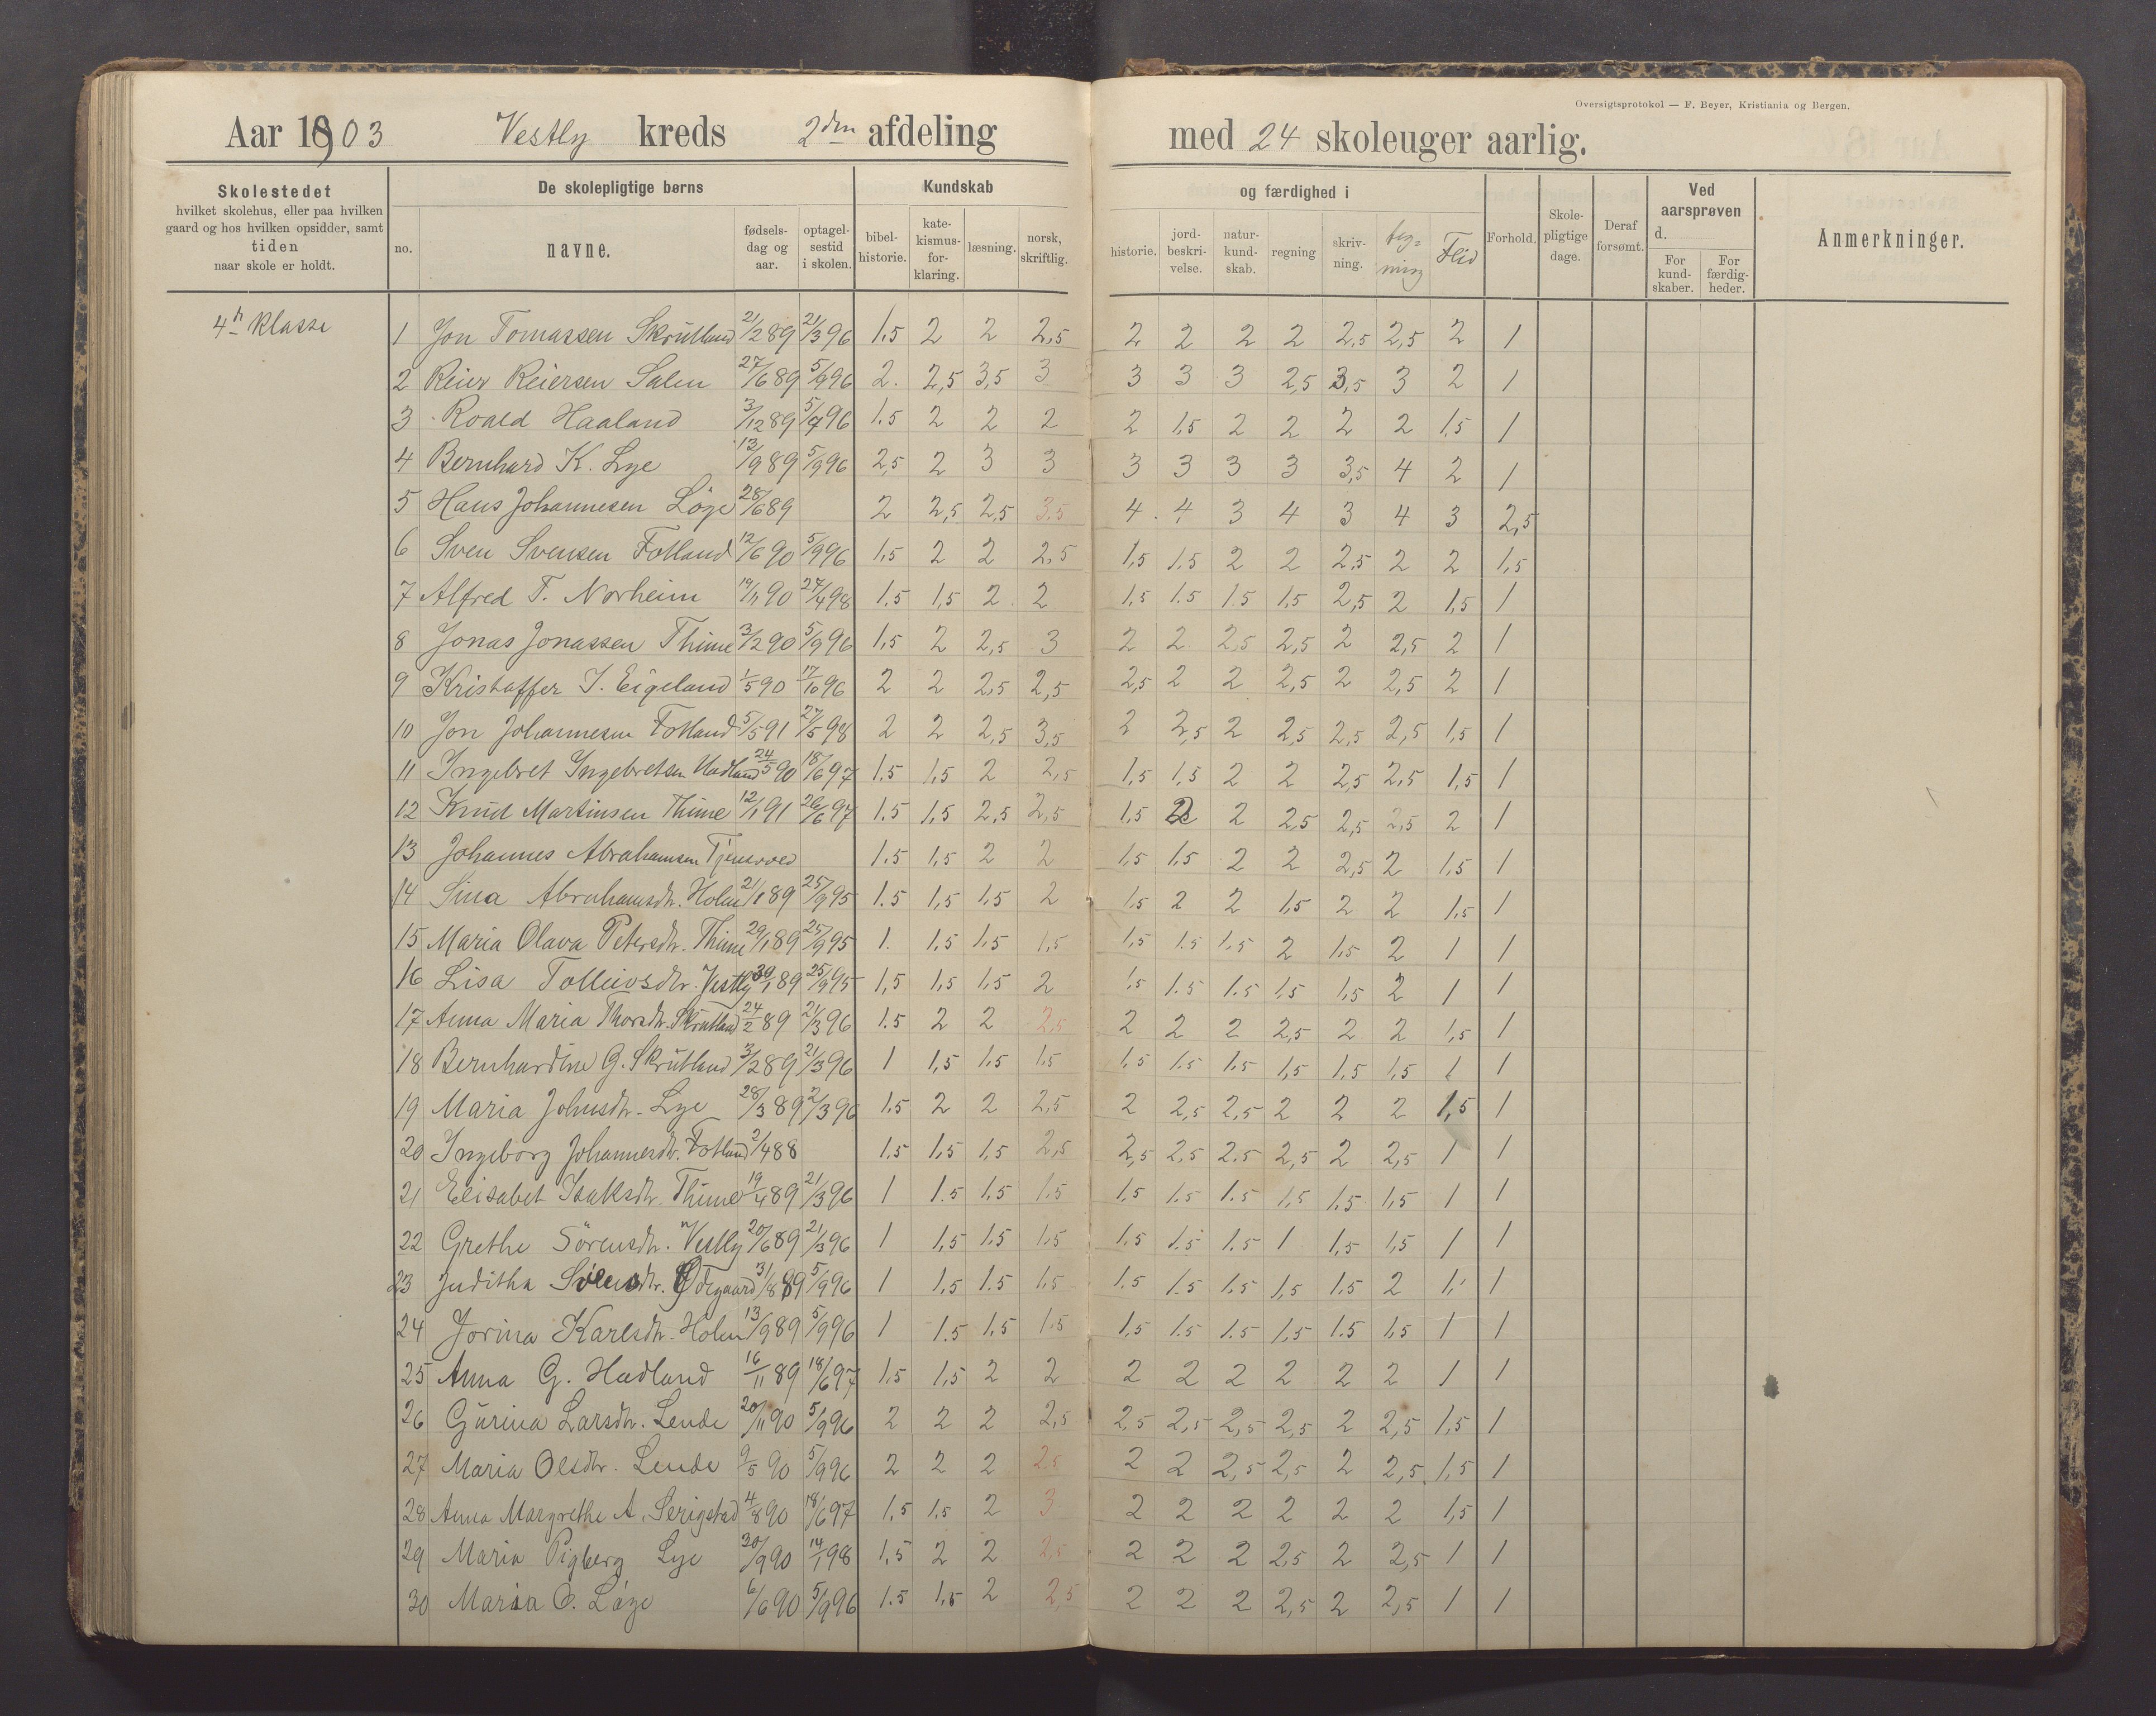 Oversigtsprotokol — F. Beyer, Kristiania og Bergen.
Aar 1903 Vestly kreds 2den afdeling med 24 skoleuger aarlig.
Skolestedet
hvilket skolehus, eller paa hvilken
gaard og hos hvilken opsidder, samt
tiden
naar skole er holdt.
De skolepligtige børns
no. navne. fødsels-dag og aar. optagel-sestid i skolen.
Kundskab og færdighed i
bibel-historie. kate-kismus-for-klaring. læsning. norsk, skriftlig. historie. jord-beskri-velse. natur-kund-skab. regning skriv-ning. teg-ning Flid
Forhold. Skole-pligtige dage. Deraf forsømt.
Ved aarsprøven d.
For kund-skaber. For færdig-heder.
Anmerkninger.
4de klasse
1 Jon Tomassen Skrutland 21/2 89 21/3 96 1.5 2 2 2,5 2 2 2 2 2,5 2,5 2 1
2 Reier Reiersen Salen 27/6 89 5/9 96 2. 2,5 3,5 3 3 3 3 2,5 3,5 3 2 1
3 Roald Haaland 3/12 89 5/9 96 1.5 2 2 2 2 1,5 2 2 2 2 1,5 1
4 Bernhard K. Lye 13/9 89 5/9 96 2,5 2 3 3 3 3 3 3 3,5 4 2 1
5 Hans Johannesen Löge 28/6 89 2 2,5 2,5 3.5 4 4 3 4 3 4 3 2,5
6 Sven Svensen Fotland 12/6 90 5/9 96 1,5 2 2 2,5 1,5 1.5 2 2 2,5 2 2 1,5
7 Alfred T. Norheim 19/11 90 24/4 98 1.5 1,5 2 2 1,5 1.5 1.5 1,5 2,5 2 1,5 1
8 Jonas Jonassen Thime 3/2 90 5/9 96 1,5 2 2,5 3 2 2 2,5 2,5 2 2,5 2 1
9 Kristoffer I. Eigeland 1/5 90 17/10 96 2 2 2,5 2,5 2,5 2 2 2,5 2 2,5 2 1
10 Jon Johannesen Fotland 5/5 91 27/5 98 2 2 2,5 3,5 2 2,5 2 2,5 2,5 2,5 1,5 1
11 Ingebret Ingebretsen Hadland 24/5 90 18/6 97 1.5 1,5 2 2,5 1,5 1,5 2 2 2,5 2,5 1,5 1
12 Knud Martinsen Thime 12/1 91 26/6 97 1.5 1,5 2,5 2,5 1,5 2 2 2,5 2,5 2,5 2 1
13 Johannes Abrahamsen 1.5 1,5 2 2 1,5 1,5 2 2 2,5 2 1,5 1
14 Sina Abrahamsdtr. Holen 21/1 89 25/9 95 1.5 1,5 1,5 2 1,5 2 2 1,5 2 2 1,5 1
15 Maria Olava Petersdtr. Thime 29/1 89 25/9 95 1. 1,5 1,5 1,5 1,5 1.5 1.5 2 1,5 2 1 1
16 Lisa Tolleivsdtr. Vestly 30/1 89 25/9 95 1,5 1,5 1,5 2 1,5 1.5 1.5 1,5 1,5 2 1 1
17 Anna Maria Thorsdtr. Skrutland 24/2 89 21/3 96 1.5 2 2 2,5 2 2 2 2,5 2 2 1,5 1
18 Bernhardine G. Skrutland 3/2 89 21/3 96 1 1,5 1,5 1,5 1,5 1.5 1.5 1,5 1.5 1,5 1 1
19 Maria Johnsdtr. Lye 28/3 89 21/3 96 1.5 2 2 2,5 2 2,5 2,5 2 2 2 1,5 1
20 Ingeborg Johannesdtr. Fotland 2/4 88 1.5 1,5 1,5 2,5 2,5 2,5 2.5 2,5 2 2,5 1 1
21 Elisabet Isaksdtr. Thime 19/4 89 21/3 96 1 1.5 1,5 1.5 1,5 1.5 1.5 1,5 1.5 1,5 1 1
22 Grethe Sörensdtr. Vestly 20/6 89 21/3 96 1 1,5 1.5 1,5 1.5 1.5 1.5 1 1,5 1,5 1 1
23 Juditha Svensdtr. Ødegaard 31/8 89 5/9 96 1 1,5 1.5 1,5 1.5 1.5 1.5 1,5 1.5 2 1 1
24 Jorina Karlsdtr. Holen 13/9 89 5/9 96 1 1.5 1,5 1.5 1,5 1.5 1.5 1,5 1.5 1,5 1 1
25 Anna G. Hadland 16/11 89 18/6 97 1,5 1,5 2 2 2 2 2 2 2 2 1 1
26 Gurina Larsdtr. Lende 20/11 90 5/9 96 2 2 2 2,5 2,5 2,5 2,5 2,5 2 2,5 1,5 1
27 Maria Olsdtr. Lende 9/5 90 5/9 96 2 2 2 2.5 2 2 2,5 2,5 2 2,5 1,5 1
28 Anna Margrethe A. Serigstad 4/8 90 18/6 97 1,5 1,5 2 3 2 2 2 2 2 2 1,5 1
29 Maria Pigberg Lye 20/9 90 14/1 98 1,5 2 2 2,5 2 2 2 2,5 2 2,5 1 1
30 Maria O. Löge 6/6 90 5/9 96 1.5 1,5 2 2,5 2 2 2 2,5 2 2,5 1 1